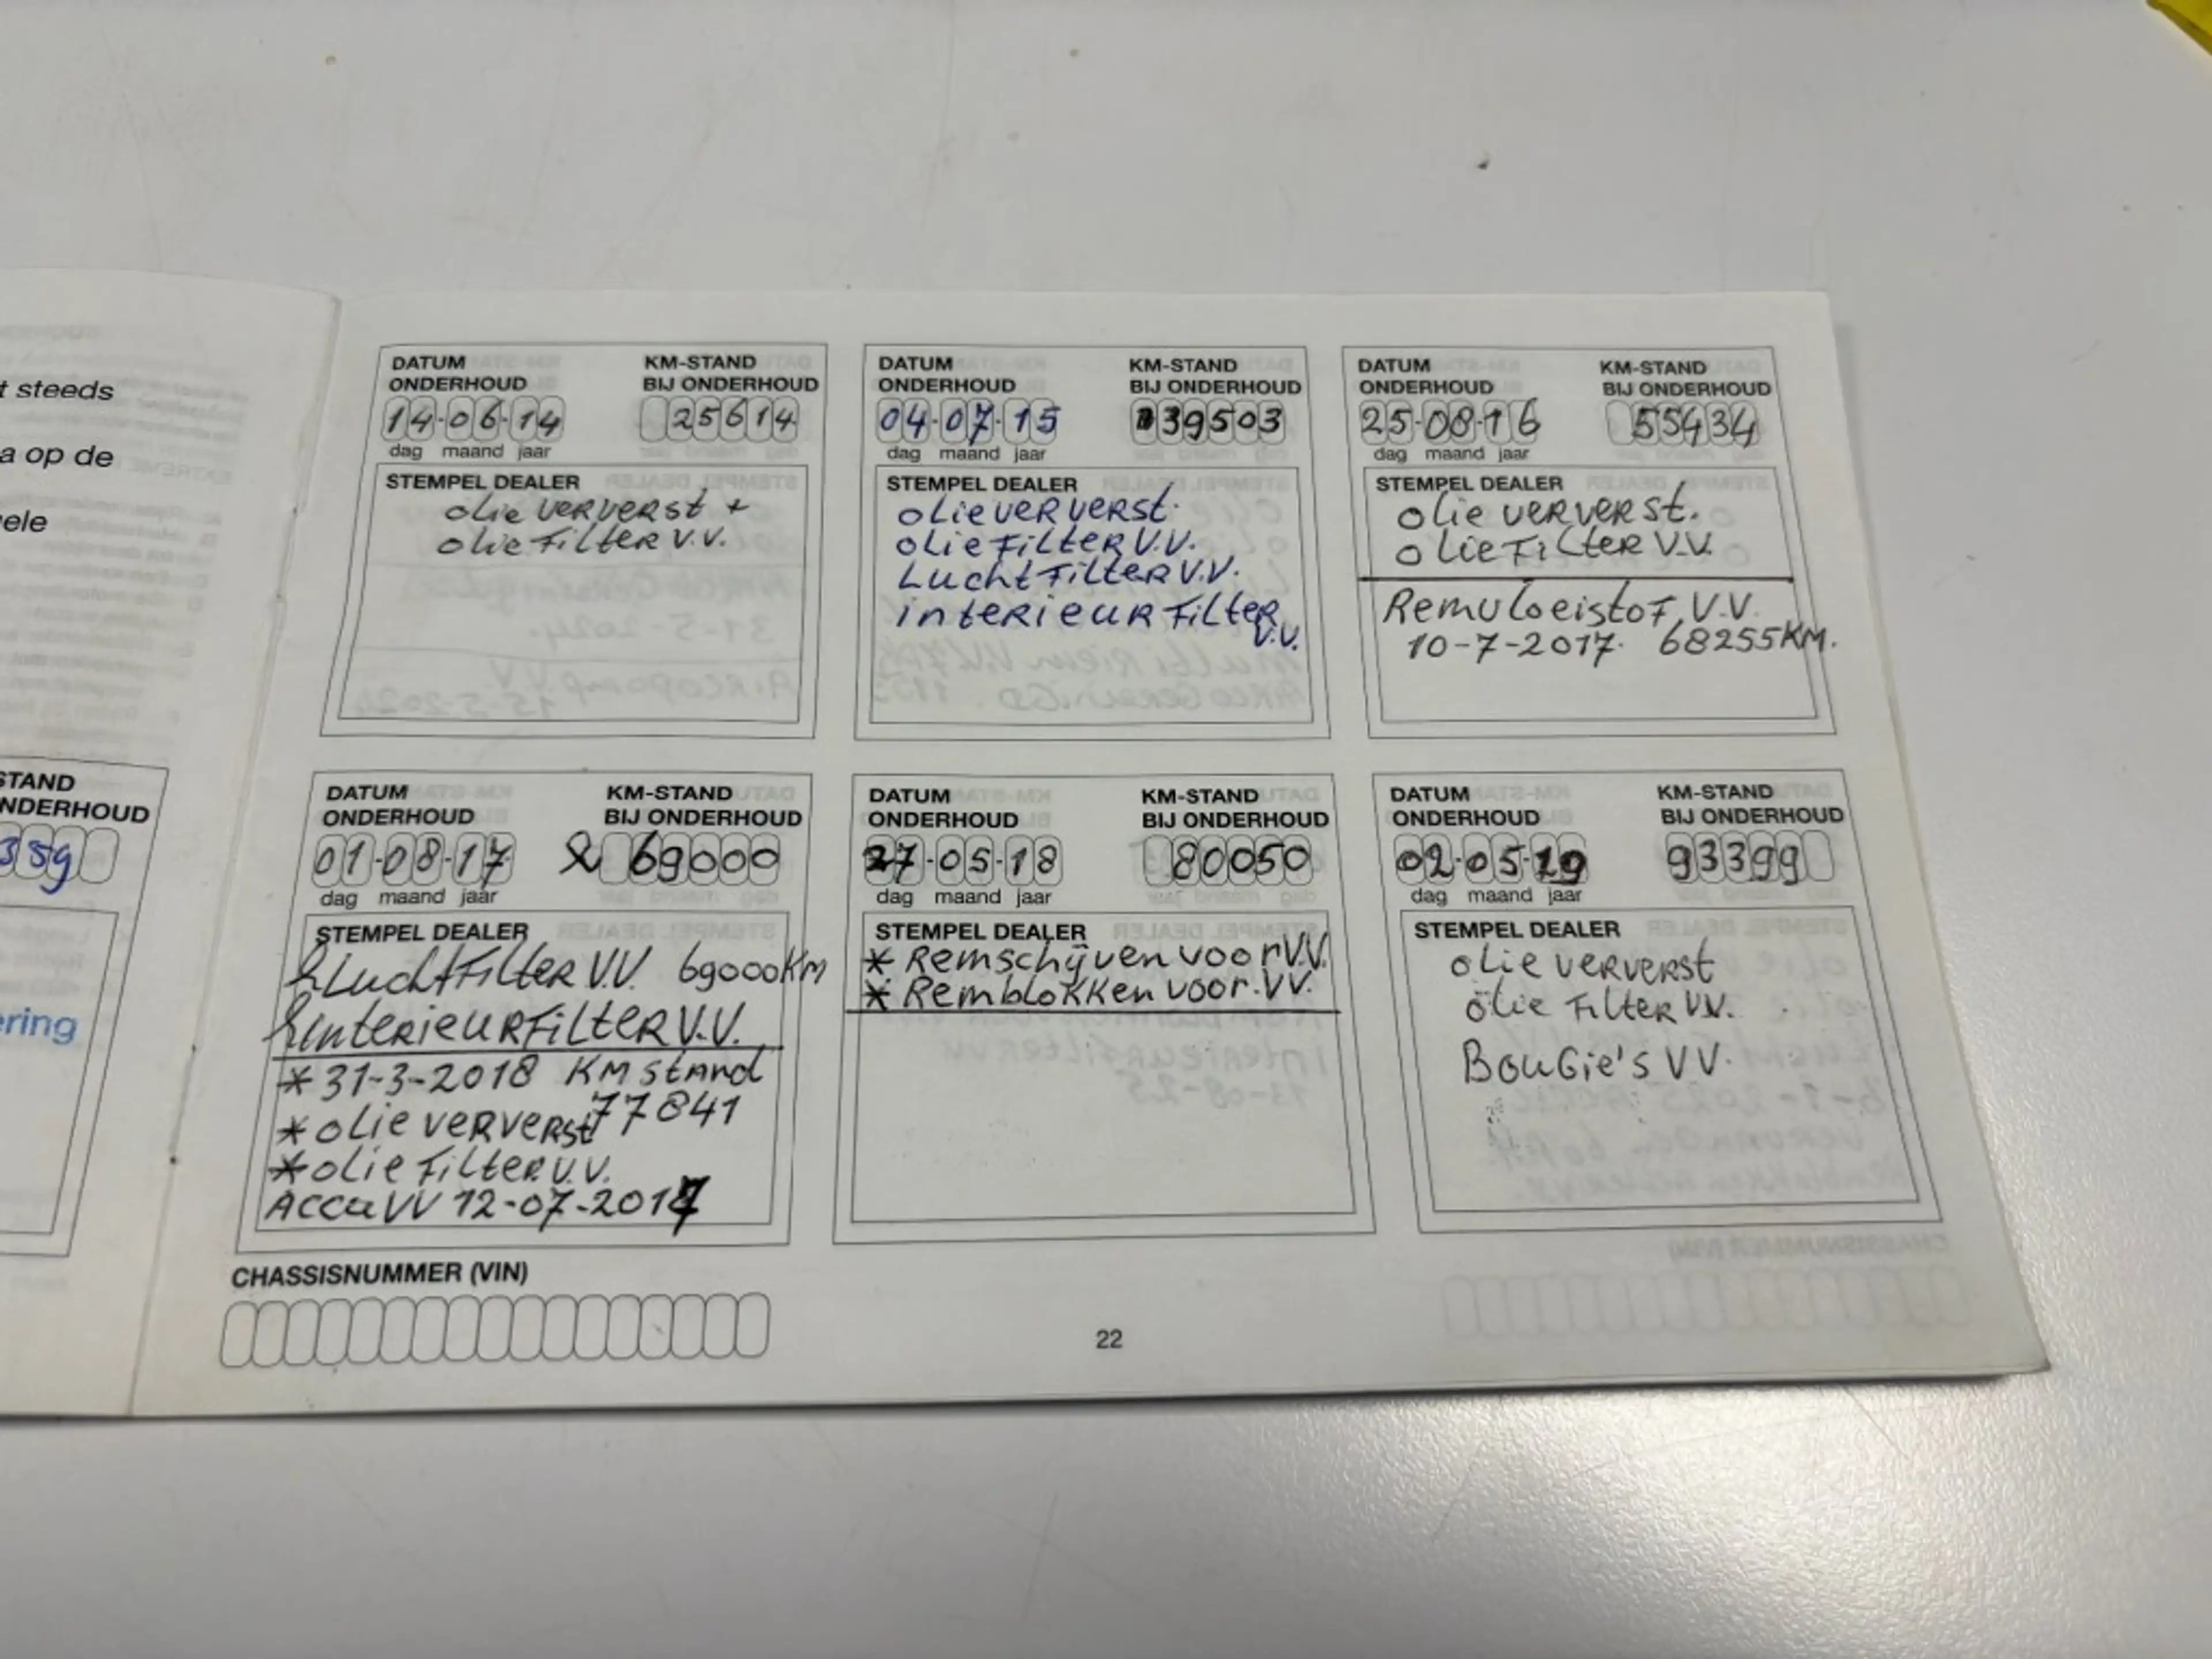 t steeds
a op de
ele
STAND
NDERHOUD
359
ering
DATUM ONDERHOUD
KM-STAND BIJ ONDERHOUD
14-06-14
25614
dag maand jaar
STEMPEL DEALER
olie ververst +
olie Filter V.V.
DATUM ONDERHOUD
KM-STAND BIJ ONDERHOUD
04-07-15
39503
dag maand jaar
STEMPEL DEALER
olie ververst.
olie Filter V.V.
Lucht Filter V.V.
interieur Filter
V.V.
DATUM ONDERHOUD
KM-STAND BIJ ONDERHOUD
25-08-16
55434
dag maand jaar
STEMPEL DEALER
olie ververst.
olie Filter V.V
Remvloeistof V.V.
10-7-2017. 68255KM.
DATUM ONDERHOUD
KM-STAND BIJ ONDERHOUD
01-08-17
69000
dag maand jaar
STEMPEL DEALER
LuchtFilter V.V. 69000KM
InterieurFilter V.V.
*31-3-2018 KM stand
77841
*olie ververst
*olie Filter V.V.
Accu VV 12-07-2017
DATUM ONDERHOUD
KM-STAND BIJ ONDERHOUD
27-05-18
80050
dag maand jaar
STEMPEL DEALER
* Remschijven voor V.V.
* Remblokken voor. VV.
DATUM ONDERHOUD
KM-STAND BIJ ONDERHOUD
02-05-19
93399
dag maand jaar
STEMPEL DEALER
olie ververst
olie Filter VV.
Bougie's VV.
CHASSISNUMMER (VIN)
22